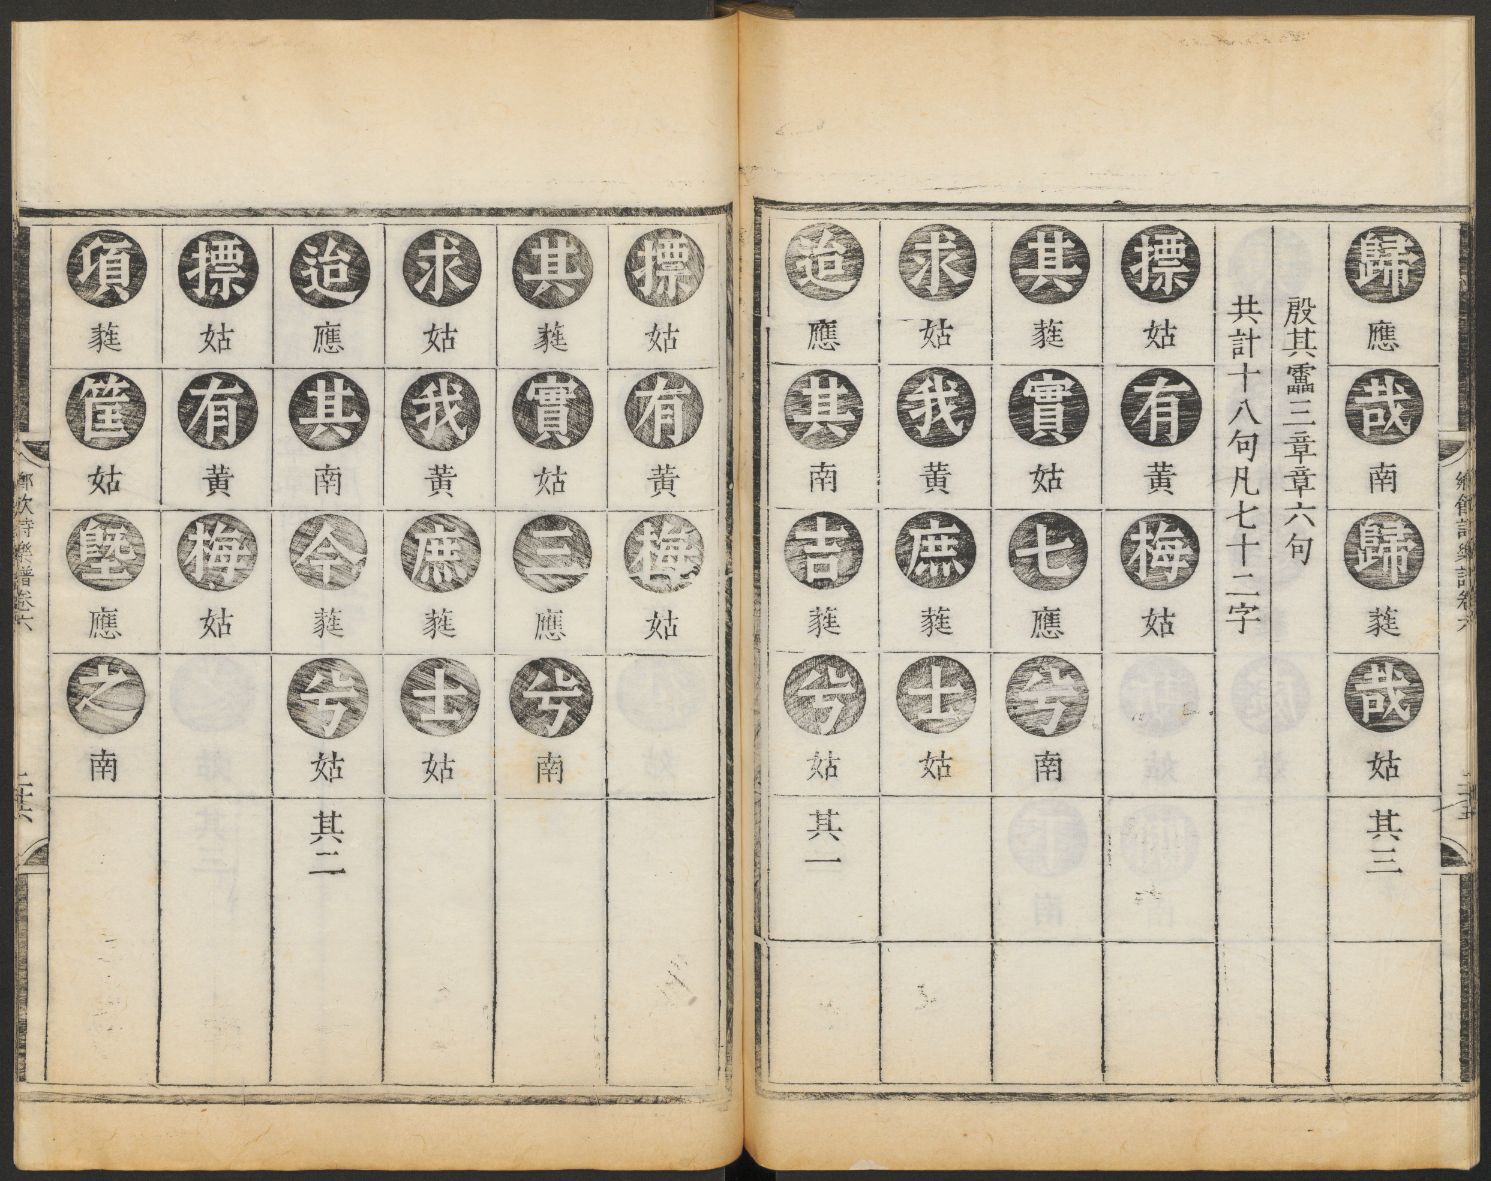 歸應哉南歸蕤哉姑其三
殷其靁三章章六句
共計十八句凡七十二字
摽姑有黃梅姑
其蕤實姑七應兮南
求姑我黃庶蕤士姑
迨應其南吉蕤兮姑其一
摽姑有黃梅姑
其蕤實姑三應兮南
求姑我黃庶蕤士姑
迨應其南今蕤兮姑其二
摽姑有黃梅姑
頃蕤筐姑塈應之南
鄉飲詩樂譜卷六
二十六